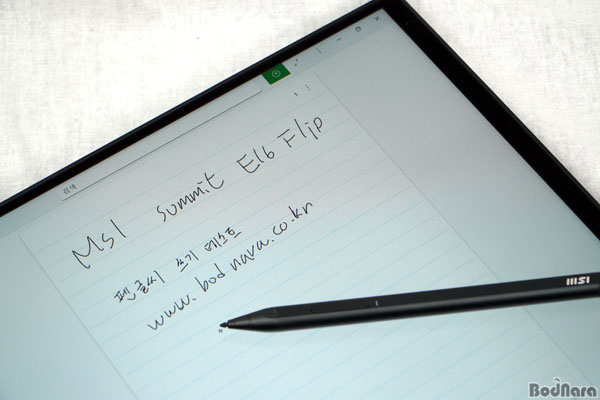 검색
MSI Summit E16 Flip
펜 글씨 쓰기 테스트
www.bodnara.co.kr
msi
BodNara